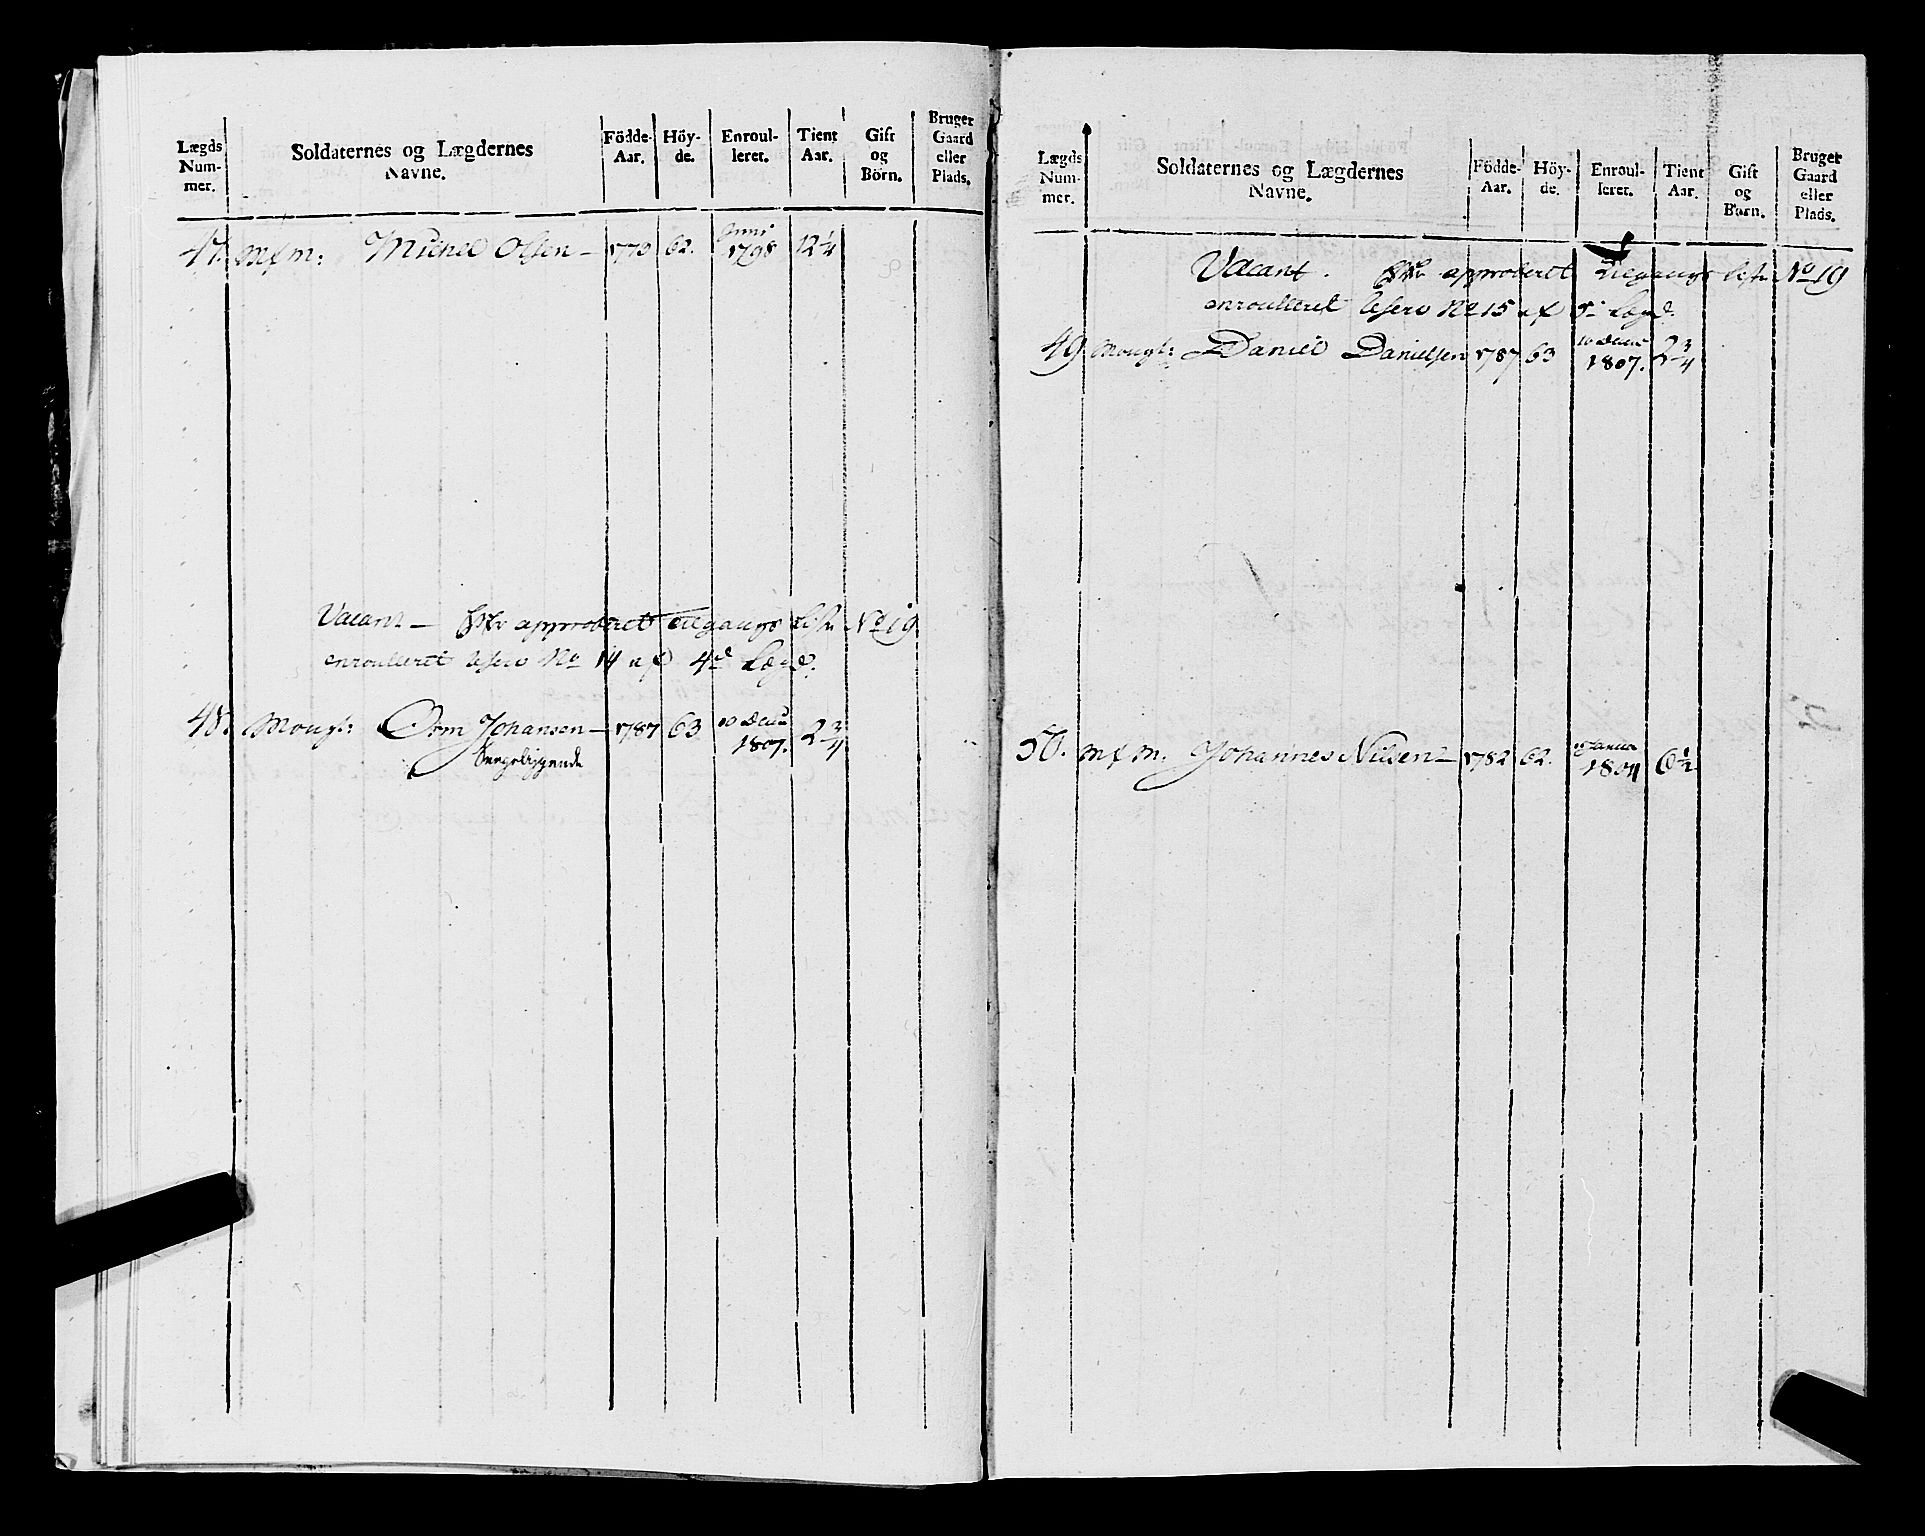 Lægds Num- mer. Soldaternes og Lægdernes Navne. Födde- Aar. Höy- de. Enroul- leret. Tient Aar. Gift og Börn. Bruger Gaard eller Plads.
47. Michel Olsen - 62. Junii 1798 12 1/4
Vacant - approberet Afgangs Liste No 19
enroulleret No 14 af 4de Lægd.
48. Orm Johansen - 1787 63 10 1807. 2 3/4
Lægds Num- mer. Soldaternes og Lægdernes Navne. Födde- Aar. Höy- de. Enroul- leret. Tient Aar. Gift og Børn. Bruger Gaard eller Plads.
Vacant. approberet Afgangs Liste No 19
enroulleret No 15 af 5te Lægd.
49. Daniel Danielsen 1787 63 10 1807. 2 3/4
50. Johannes Nilsen - 1782 62. 1804 6 1/2